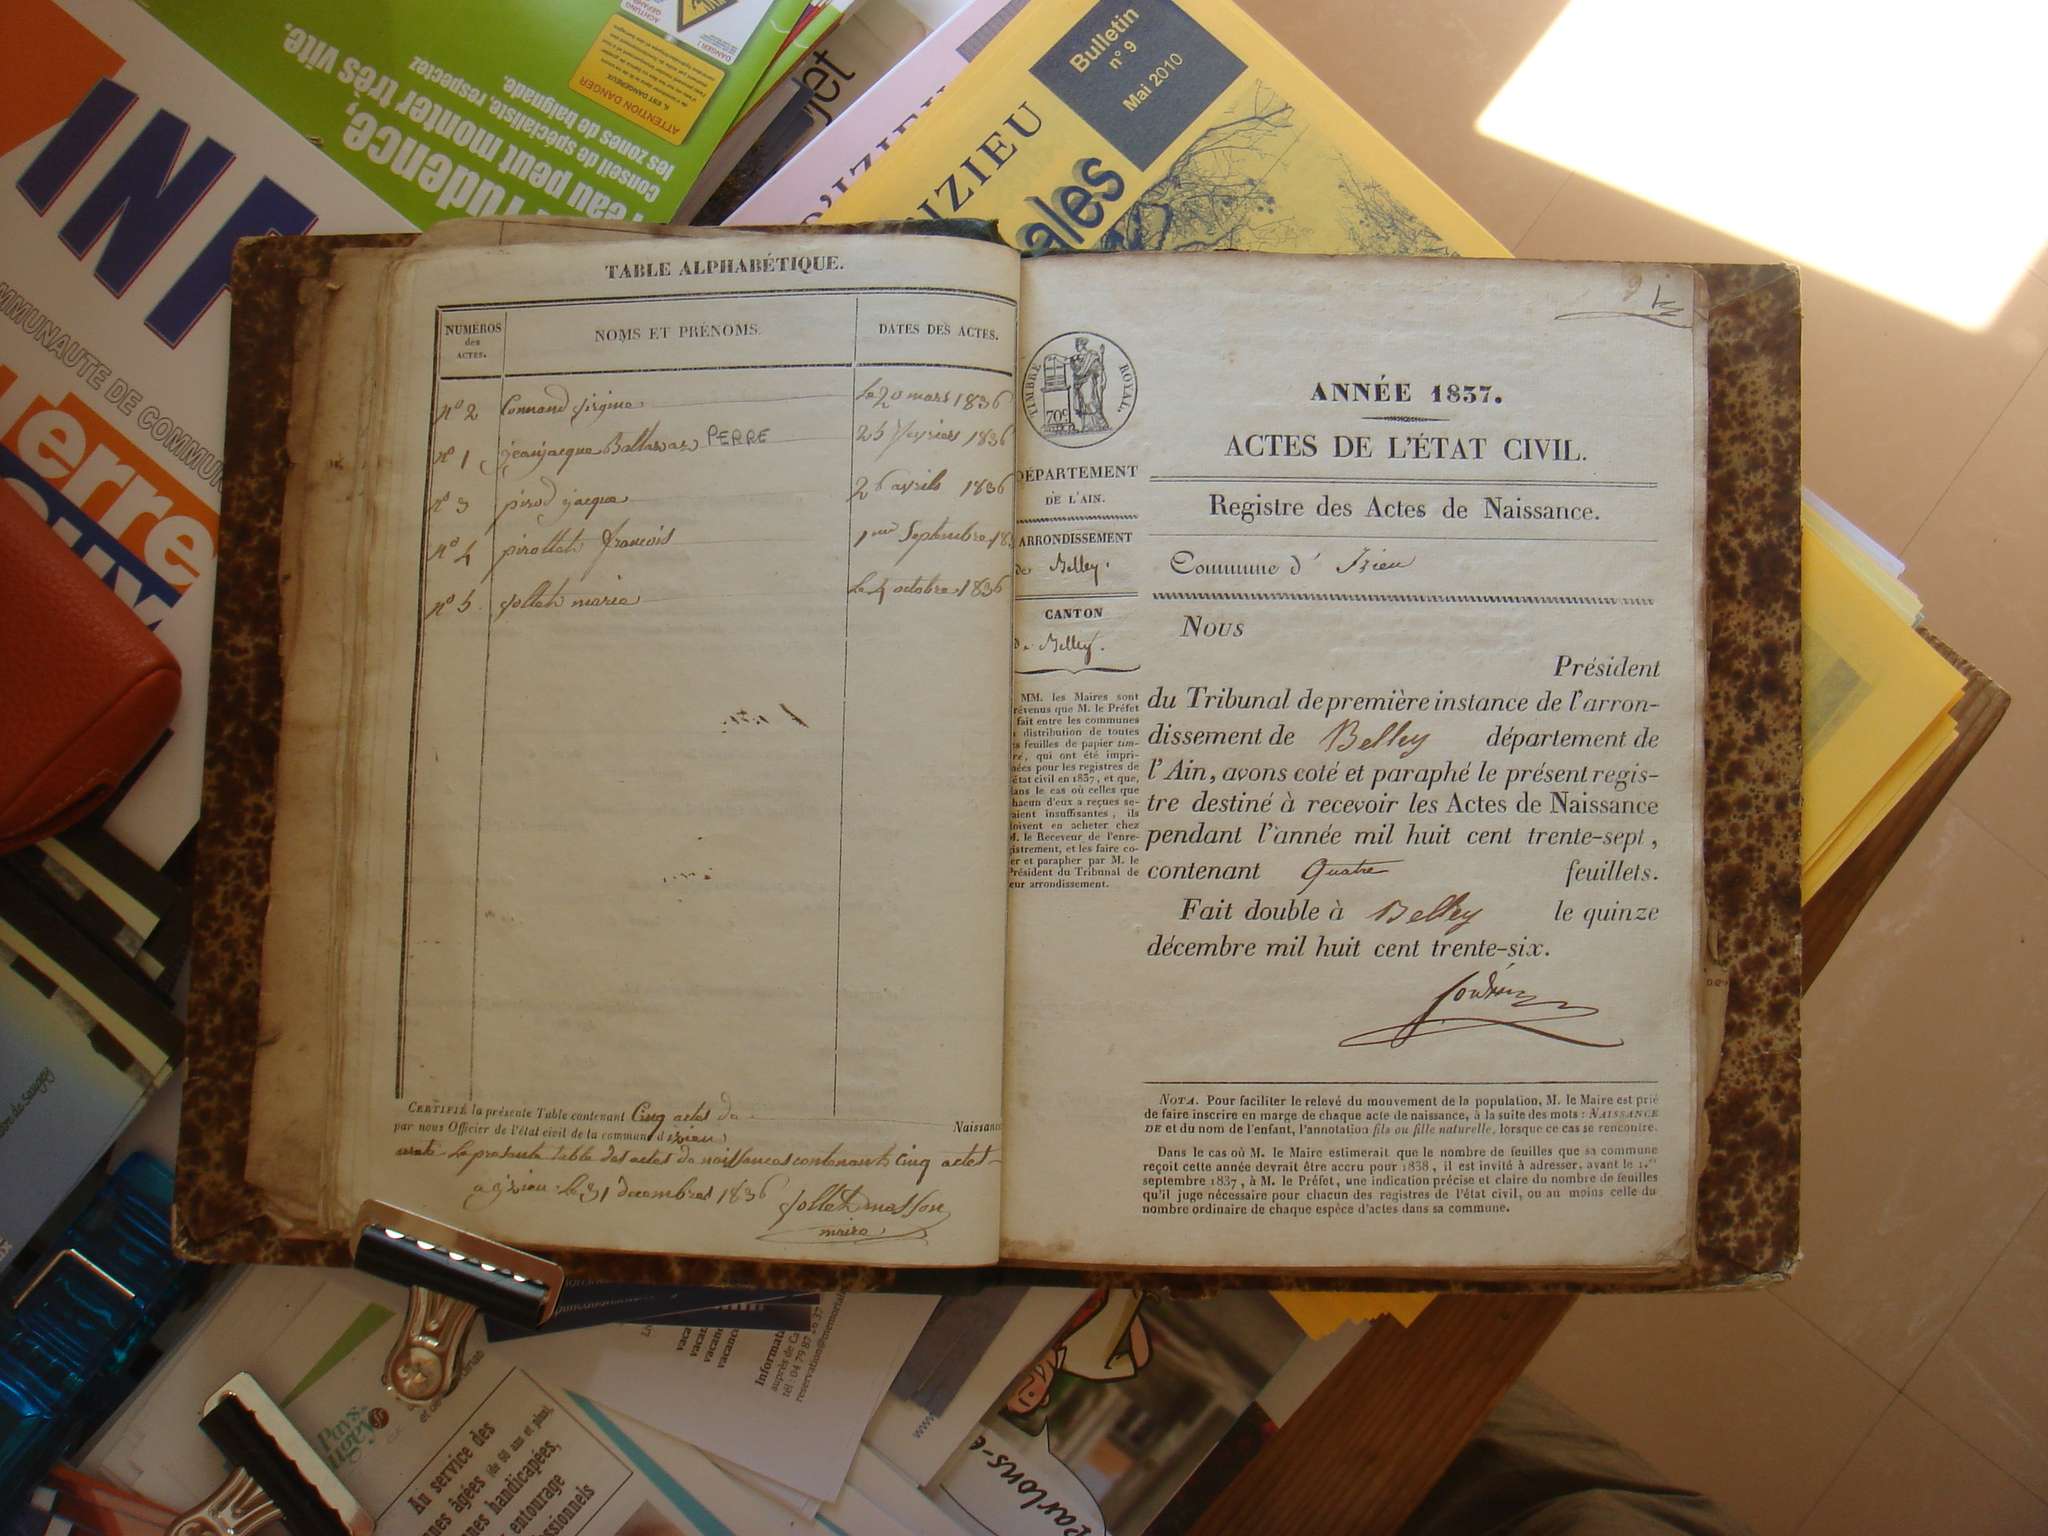 TABLE ALPHABÉTIQUE.
NUMÉROS des ACTES. NOMS ET PRÉNOMS. DATES DES ACTES.
nº 2 Connand virginie Le 20 mars 1836
nº 1 jeanjacque Baltazar PERRE 25 fevrier 1836
nº 3 pirod jacque 26 avrils 1836
nº 4 pirollet françois 1er Septembre 18
nº 5 jollet marie Le 4 octobre 1836
CERTIFIÉ la présente Table contenant Cinq actes de Naissance
par nous Officier de l'état civil de la commune d'izieu
Le presente table des actes de naissances contenant Cinq actes
a izieu Le 31 decembres 1836 jollet masson
maire
TIMBRE ROYAL.
70c
DÉPARTEMENT
DE L'AIN.
ARRONDISSEMENT
de Belley.
CANTON
De Belley.
MM. les Maires sont
révenus que M. le Préfet
fait entre les communes
distribution de toutes
s feuilles de papier tim-
ré, qui ont été impri-
mées pour les registres de
état civil en 1837, et que,
ans le cas où celles que
hacun d'eux a reçues se-
aient insuffisantes, ils
doivent en acheter chez
M. le Receveur de l'enre-
gistrement, et les faire co-
er et parapher par M. le
Président du Tribunal de
eur arrondissement.
ANNÉE 1837.
ACTES DE L'ÉTAT CIVIL.
Registre des Actes de Naissance.
Commune d' Izieu
Nous
Président
du Tribunal de première instance de l'arron-
dissement de Belley département de
l'Ain, avons coté et paraphé le présent regis-
tre destiné à recevoir les Actes de Naissance
pendant l'année mil huit cent trente-sept,
contenant Quatre feuillets.
Fait double à Belley le quinze
décembre mil huit cent trente-six.
NOTA. Pour faciliter le relevé du mouvement de la population, M. le Maire est prié
de faire inscrire en marge de chaque acte de naissance, à la suite des mots : NAISSANCE
DE et du nom de l'enfant, l'annotation fils ou fille naturelle, lorsque ce cas se rencontre.
Dans le cas où M. le Maire estimerait que le nombre de feuilles que sa commune
reçoit cette année devrait être accru pour 1838, il est invité à adresser, avant le 1.er
septembre 1837, à M. le Préfet, une indication précise et claire du nombre de feuilles
qu'il juge nécessaire pour chacun des registres de l'état civil, ou au moins celle du
nombre ordinaire de chaque espèce d'actes dans sa commune.
Bulletin
n° 9
Mai 2010
IZIEU
ales
D'IZIEU
jet
ATTENTION DANGER
rudence,
l'eau peut monter très vite.
conseil de spécialiste, respectez
les zones de baignade.
INF
MMUNAUTÉ DE COMMUN
erre
vacan
vacance
Informati
auprès de Ca
tél : 04 79 87
reservation@memorial
www.
Parlons-e
Pays
Bugey
Au service des
nes âgées (de 60 ans et plus),
nes handicapées,
entourage
essionnels